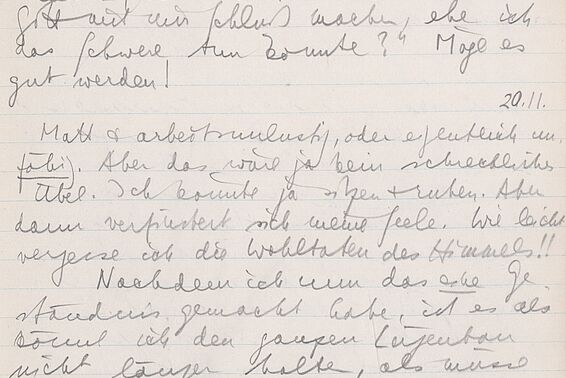 Gott mit mir Schluß machen, ehe ich
das Schwere tun konnte?“ Möge es
gut werden!
20.11.
Matt & arbeitsunlustig, oder eigentlich un-
fähig. Aber das wäre ja kein schreckliches
Übel. Ich könnte ja sitzen + ruhen. Aber
dann verfinstert sich meine Seele. Wie leicht
vergesse ich die Wohltaten des Himmels!!
Nachdem ich nun das eine Ge-
ständnis gemacht habe, ist es als
könnt ich den ganzen Lügenbau
nicht länger halten, als müsse